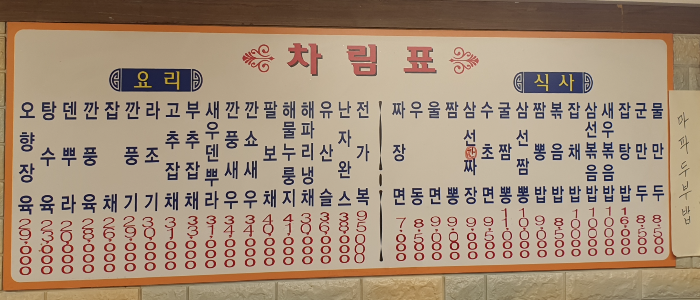 차림표
요리
오향장육
탕수육
덴뿌라
깐풍육
잡채
깐풍기 29.000
라조기 30.000
고추잡채 31.000
부추잡채 33.000
새우덴뿌라 31.000
깐풍새우 34.000
깐쇼새우 34.000
팔보채 40.000
해물누룽지 41.000
해파리냉채 30.000
유산슬 36.000
난자완스 38.000
전가복
식사
짜장면 7.000
우동 8.500
울면 9.000
짬뽕 9.000
삼선간짜장 9.500
수초면 9.500
굴짬뽕 11.000
삼선짬뽕 11.000
짬뽕밥 9.000
볶음밥 8.500
잡채밥 10.000
삼선볶음밥 10.000
새우볶음밥 10.000
잡탕밥 16.000
군만두 8.500
물만두 8.500
마파두부밥